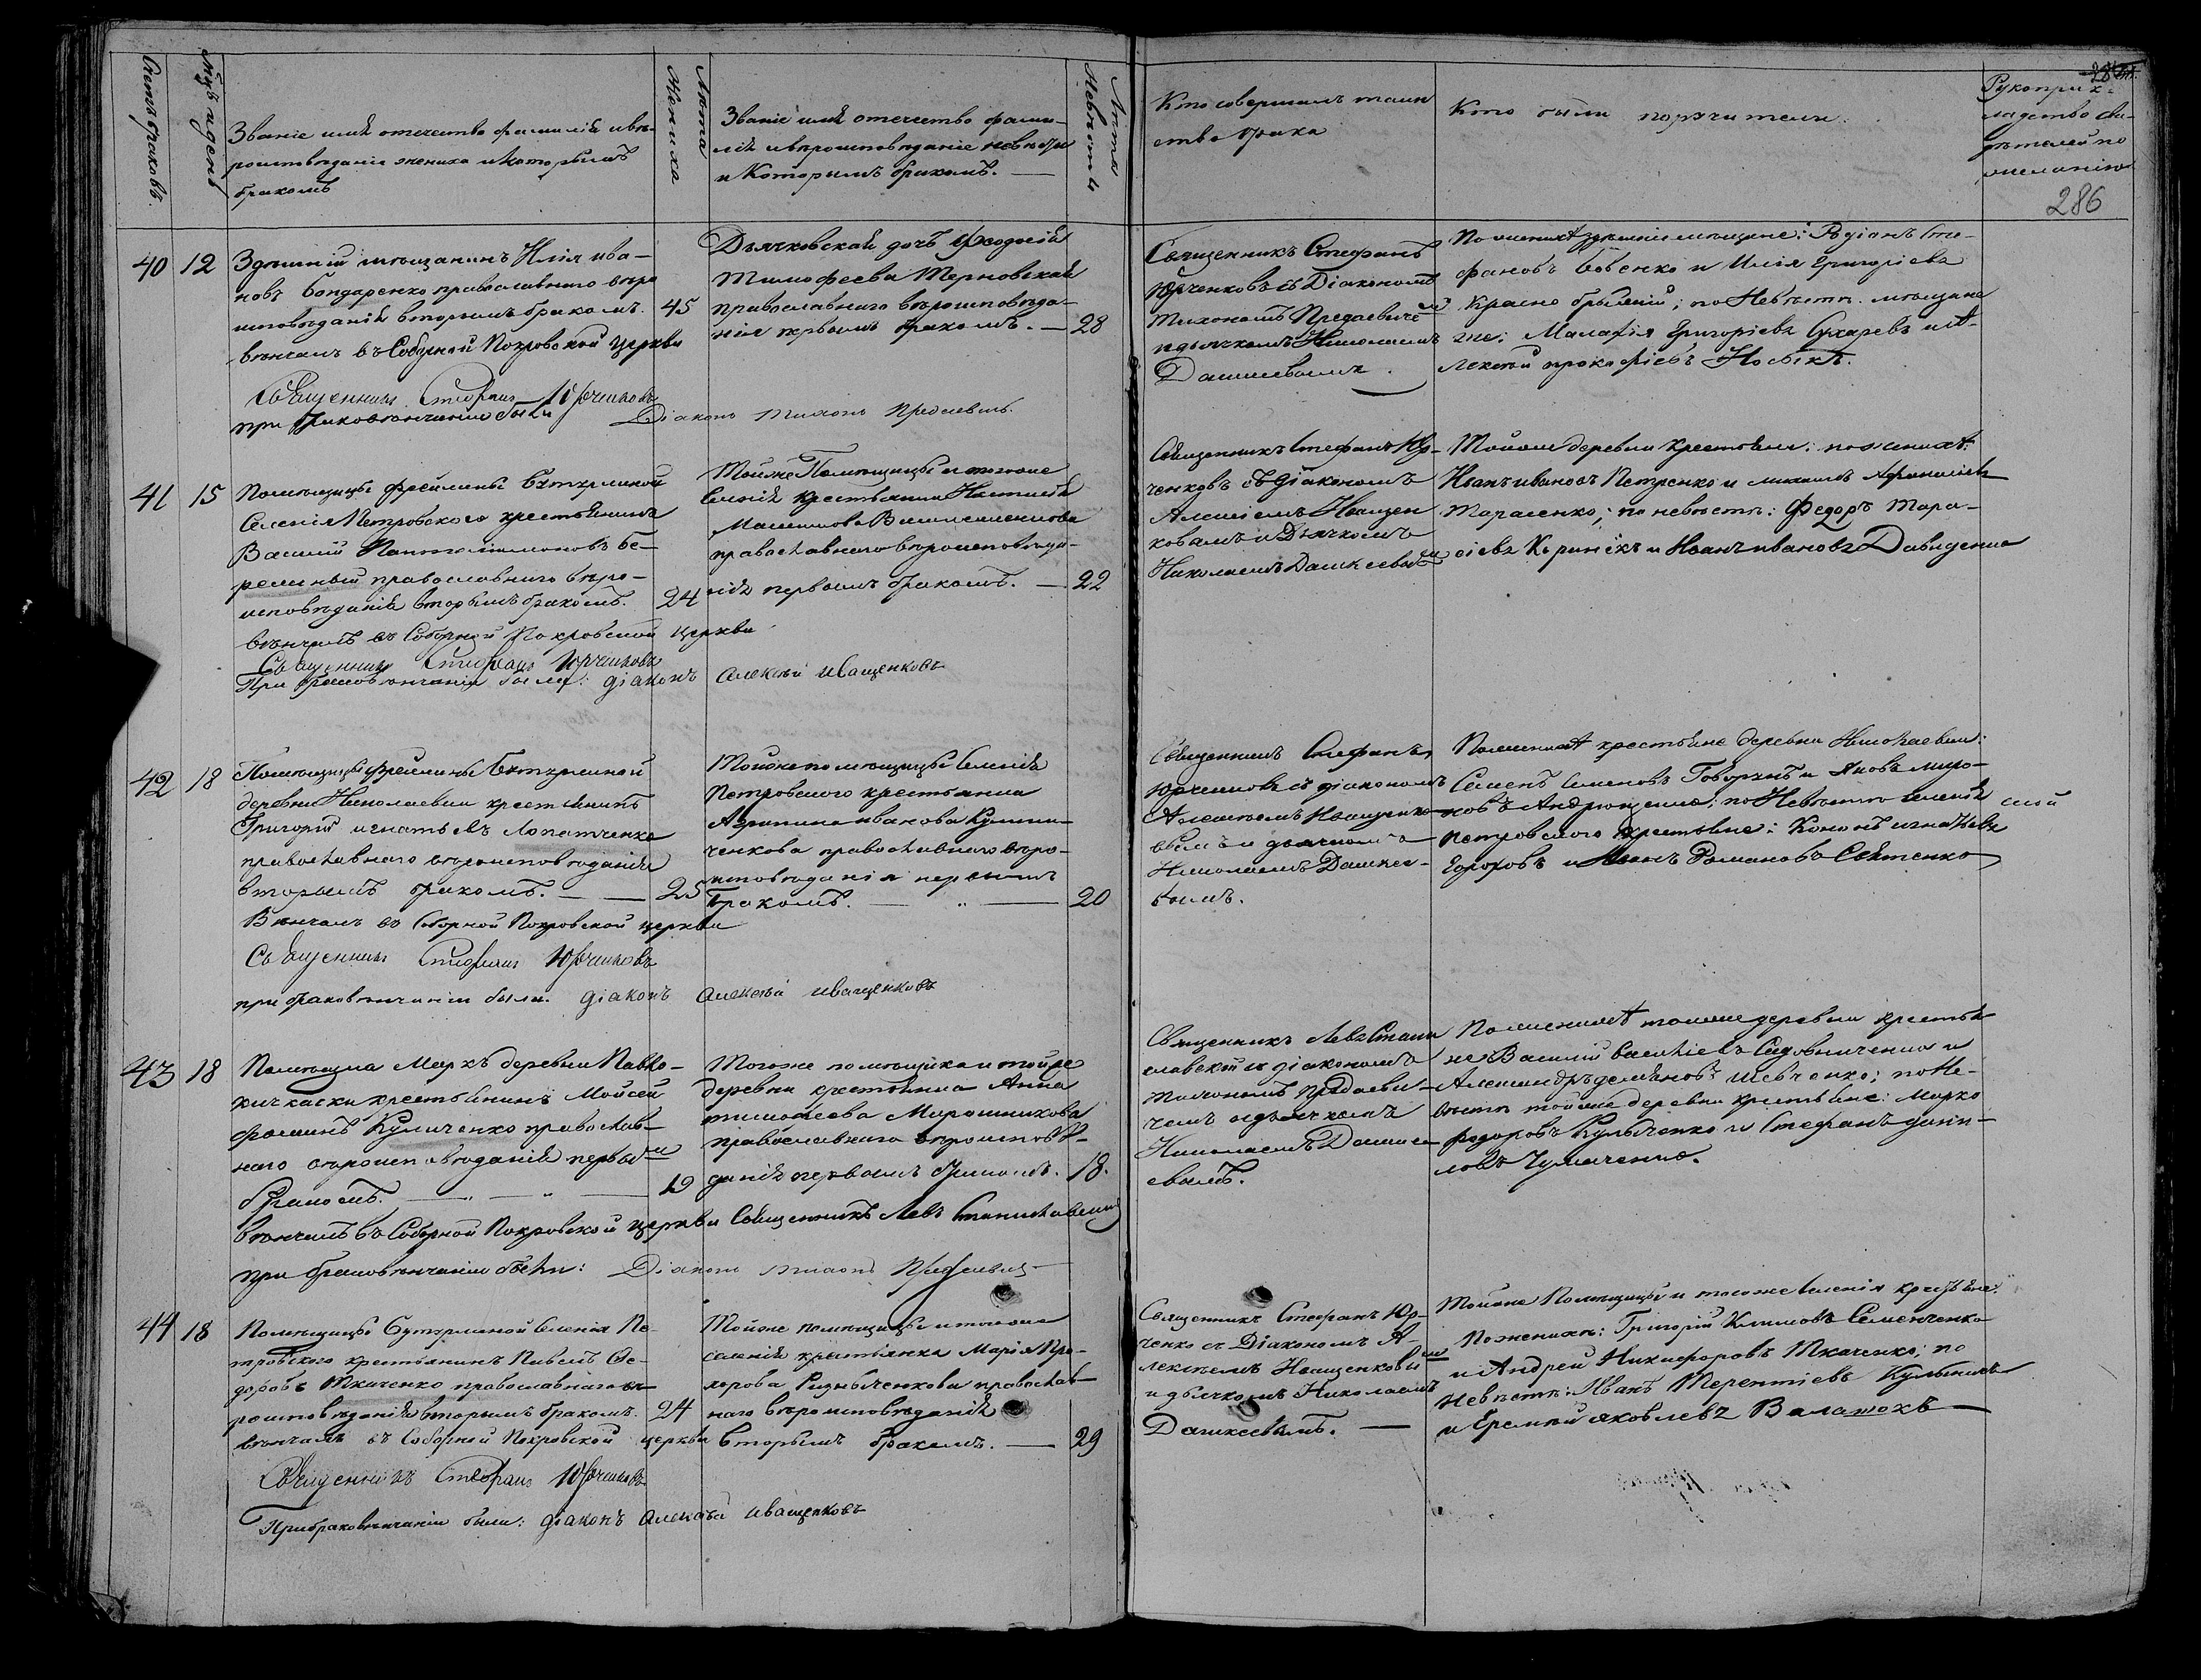 286
Счетъ браковъ.
Мѣсяцъ и день
Званіе имя отечество фамилія и вѣ-
роисповѣданіе жениха и которымъ
бракомъ
Лѣта Жениха
Званіе имя отечество фами-
лія и вѣроисповѣданіе невѣсты
и Которымъ бракомъ. —
Лѣта Невѣсты
Кто совершалъ таин
ство брака
Кто были поручители.
Рукоприк-
ладство сви-
дѣтелей по
желанію
286
40 12
Здѣшній мѣщанинъ Илія ива-
новъ бондаренко православнаго вѣро
исповѣданія вторымъ бракомъ. 45
вѣнчанъ въ Соборной Покровской Церкви
Священникъ Стефанъ Юрченковъ
при браковѣнчаніи были Діаконъ Тихонъ Предаевичъ.
Дьячковская дочь Феодосія
Тимофеева Терновская
православнаго вѣроисповѣда-
нія первымъ бракомъ. — 28
Священникъ Стефанъ
Юрченковъ съ Діакономъ
Тихономъ Предаевичемъ
и дьячкомъ Николаемъ
Дашкевымъ.
По женихѣ здѣшніе мѣщане: Родіонъ Сте-
фановъ бовенко и Илія Григоріевъ
Красно ; по Невѣстѣ. мѣщане
же: Малафія Григоріевъ Сухаревъ и А-
лексѣй прокофіевъ Носикъ.
41 15
Помѣщицы фрейлины
Селенія Петровского крестьянинъ
Василій Пантелимоновъ бе-
режный православнаго вѣро-
исповѣданія вторымъ бракомъ. 24
вѣнчанъ въ Соборной Покровской церкви
Священникъ Стефанъ Юрченковъ
При браковѣнчаніи были: діаконъ Алексѣй иващенковъ
Тойже Помѣщицы и тогоже
Селенія крестьянка Настасія
Максимова
православнаго вѣроисповѣда-
нія первымъ бракомъ. — 22
Священникъ Стефанъ Юр-
ченковъ съ діакономъ
Алексіемъ Иващен
ковымъ и Дьячкомъ
Николаемъ Дашкевымъ
Тойже деревни крестьяне: по женихѣ:
Иванъ ивановъ Петренко и михаилъ Афанасіевъ
Тарасенко; по невѣстѣ: Федоръ Тара-
сіевъ и Иванъ ивановъ Давиденко
42 18
Помѣщицы фрейлины
деревни Николаевки крестьянинъ
Григорій игнатьевъ Лопатченко
православнаго вѣроисповѣданія
вторымъ бракомъ. — — 25
Вѣнчанъ въ Соборной Покровской церкви
Священникъ Стефанъ Юрченковъ
при браковѣнчаніи были: діаконъ Алексѣй иващенковъ
Тойже помѣщицы Селенія
Петровского крестьянка
Агрипина иванова
ченкова православнаго вѣро-
исповѣданія первымъ
бракомъ. — „ — 20
Священникъ Стефанъ
Юрченковъ съ діакономъ
Алексѣемъ Иващенко-
вымъ и дьячкомъ
Николаемъ Дашке-
вымъ.
По женихѣ крестьяне деревни Николаевки:
Семенъ Семеновъ Говорунъ и Яковъ миро-
новъ Андрющенко; по Невѣстѣ Селенія
Петровского крестьяне: Кононъ игнатьевъ
и Иванъ Романовъ Святенко
43 18
Помѣщика Маркъ деревни Павло-
кичкаски крестьянинъ Мойсей
фоминъ Куличенко православ-
наго вѣроисповѣданія первымъ
бракомъ. — „ — „ — 19
вѣнчанъ въ Соборной Покровской церкви Священникъ Левъ Станиславскій
при браковѣнчаніи были: Діаконъ Тихонъ Предаевичъ
Тогоже помѣщика и тойже
деревни крестьянка Анна
тимофеева Мирошникова
православнаго вѣроисповѣ-
данія первымъ бракомъ. 18.
Священникъ Левъ Стани
славскій съ діакономъ
Тихономъ Предаеви-
чемъ и дьячкомъ
Николаемъ Дашке-
евымъ.
По женихѣ тойже деревни крестья-
не Василій Василіевъ Садовниченко и
Александръ демяновъ шевченко; по Не-
вѣстѣ тойже деревни крестьяне: Марко
федоровъ Кульченко и Стефанъ дани-
ловъ Чумаченко.
44 18
Помѣщицы Селенія Пе-
тровского крестьянинъ Павелъ Фе-
доровъ Ткаченко православнаго вѣ-
роисповѣданія вторымъ бракомъ. 24
вѣнчанъ въ Соборной Покровской церкви
Священникъ Стефанъ Юрченковъ
При браковѣнчаніи были: діаконъ Алексѣй иващенковъ
Тойже помѣщицы и тогоже
селенія крестьянка Марія Про-
хорова православ-
наго вѣроисповѣданія
вторымъ бракомъ. — 29
Священникъ Стефанъ Юр-
ченко съ Діакономъ А-
лексѣемъ Иващенковымъ
и дьячкомъ Николаемъ
Дашкеевымъ. —
Тойже Помѣщицы и тогоже селенія крестьяне:
По женихѣ: Григорій Климовъ Семенченко
и Андрей Никифоровъ Ткаченко; по
Невѣстѣ: Иванъ Терентіевъ
и Еремѣй яковлевъ Валатохъ —